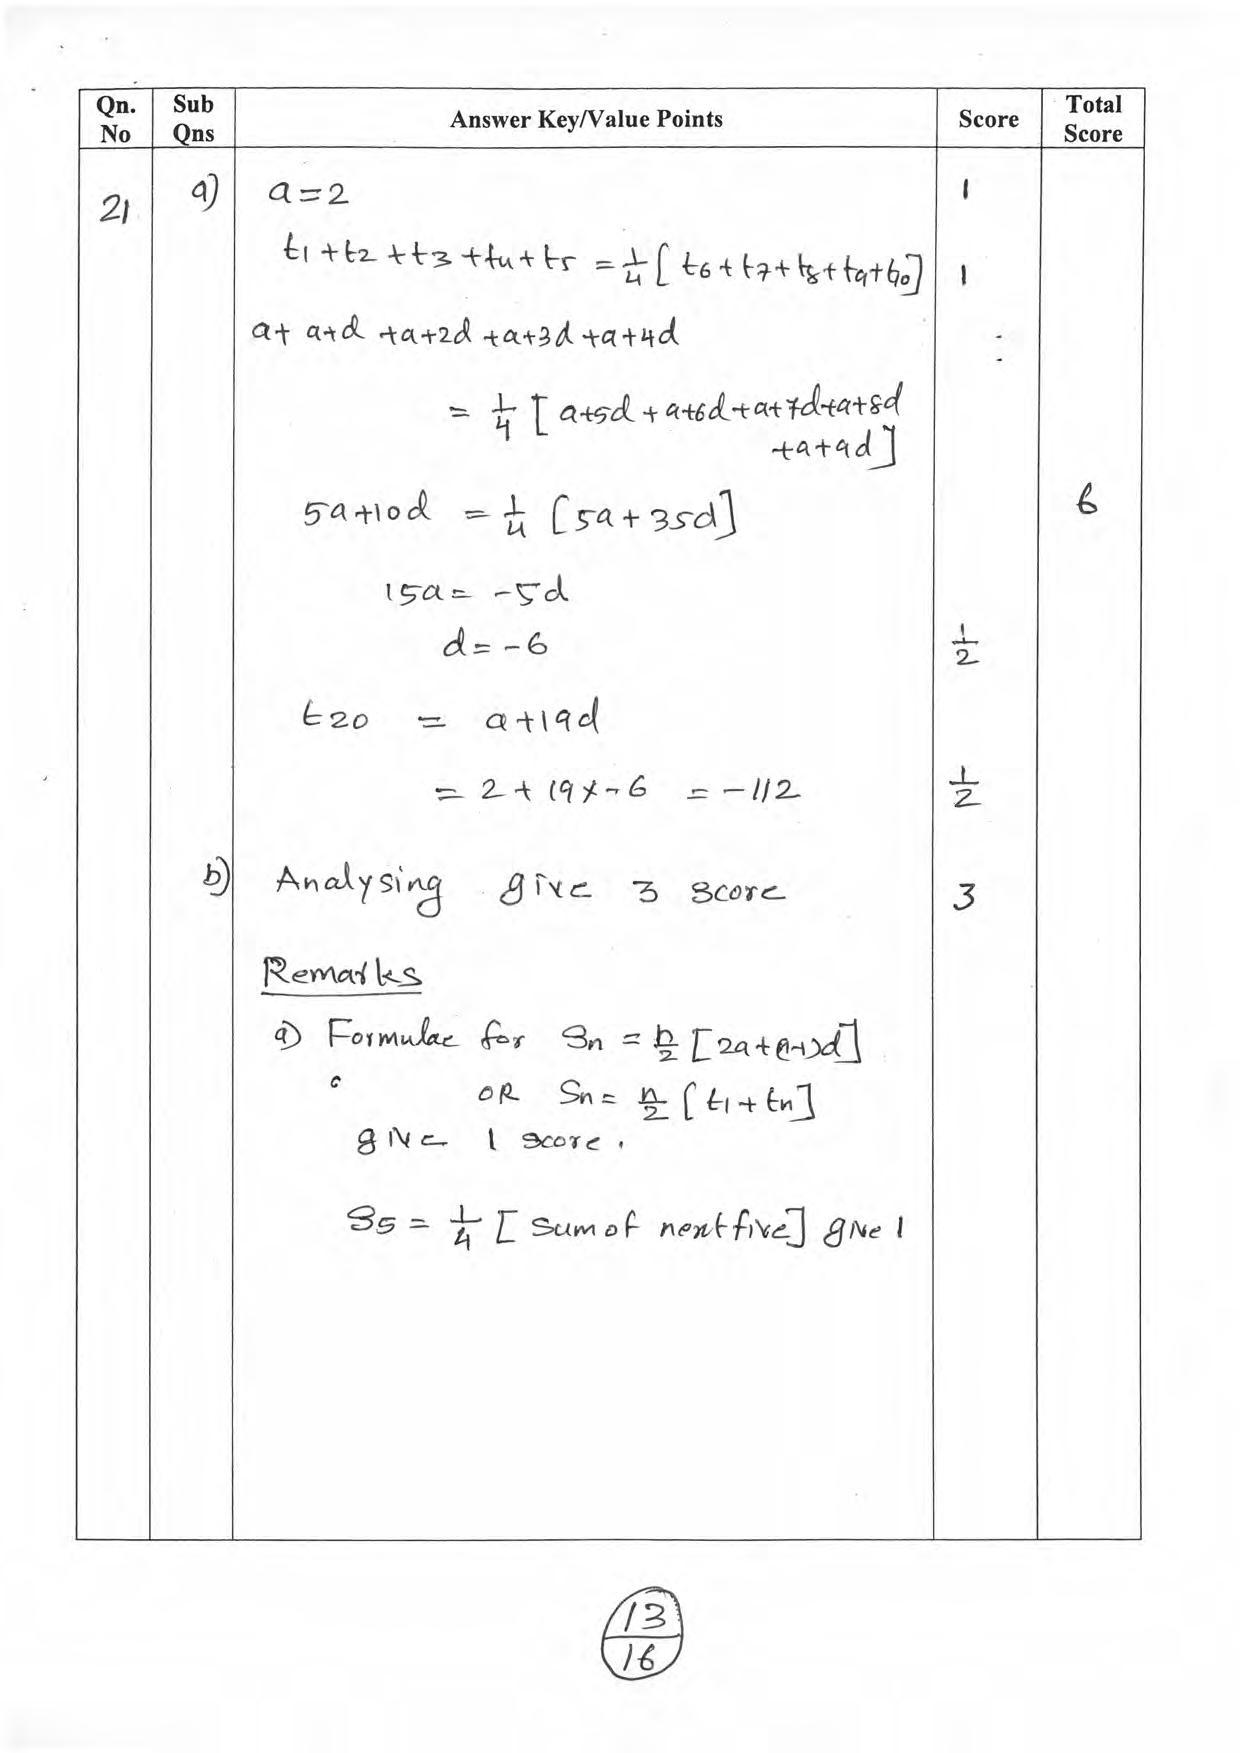 Qn. No Sub Qns Answer Key/Value Points Score Total Score
21 a) a = 2 1
t1 + t2 + t3 + t4 + t5 = 1/4 [ t6 + t7 + t8 + t9 + t10 ] 1
a + a+d + a+2d + a+3d + a+4d
= 1/4 [ a+5d + a+6d + a+7d + a+8d
+ a + 9d ]
5a + 10d = 1/4 [ 5a + 35d ] 6
15a = -5d
d = -6 1/2
t20 = a + 19d
= 2 + 19 x -6 = -112 1/2
b) Analysing give 3 score 3
Remarks
a) Formulae for Sn = n/2 [ 2a + (n-1)d ]
OR Sn = n/2 [ t1 + tn ]
give 1 score.
S5 = 1/4 [ sum of next five ] give 1
13
16